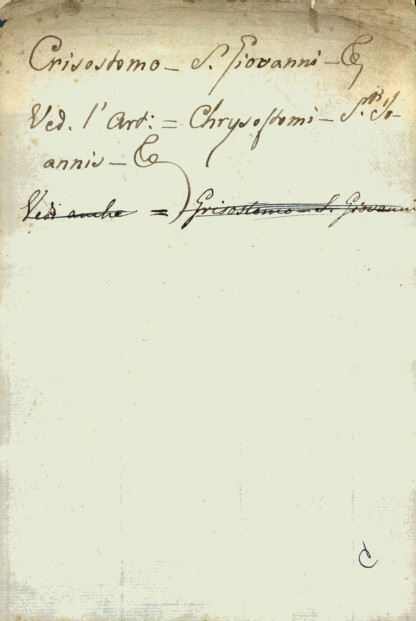 Crisostomo - S. Giovanni - &c
Ved. l'Art: = Chrysostomi - S.ti Jo-
annis - &c
Vedi anche = Grisostomo - S. Giovanni